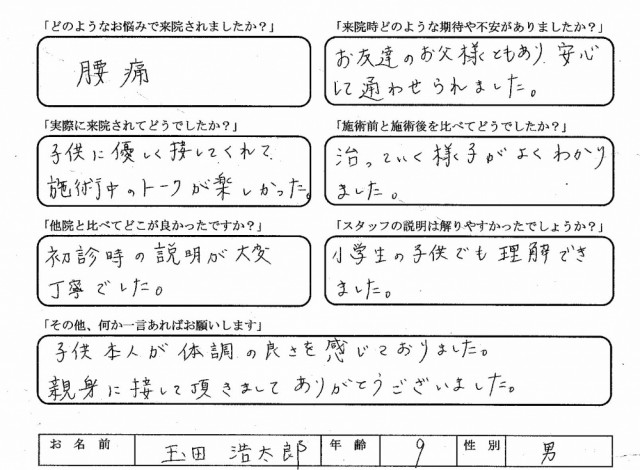 「どのようなお悩みで来院されましたか？」
腰痛
「来院時どのような期待や不安がありましたか？」
お友達のお父様ともあり安心
して通わせられました。
「実際に来院されてどうでしたか？」
子供に優しく接してくれて
施術中のトークが楽しかった。
「施術前と施術後を比べてどうでしたか？」
治っていく様子がよくわかり
ました。
「他院と比べてどこが良かったですか？」
初診時の説明が大変
丁寧でした。
「スタッフの説明は解りやすかったでしょうか？」
小学生の子供でも理解でき
ました。
「その他、何か一言あればお願いします」
子供本人が体調の良さを感じておりました。
親身に接して頂きましてありがとうございました。
お名前 玉田 浩太郎 年齢 9 性別 男